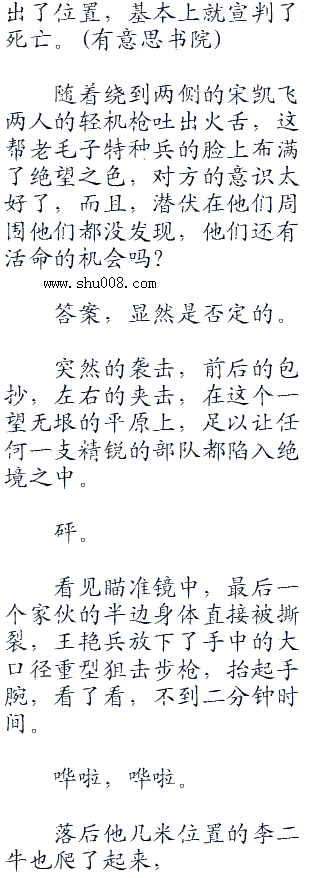 出了位置，基本上就宣判了
死亡。(有意思书院)
随着绕到两侧的宋凯飞
两人的轻机枪吐出火舌，这
帮老毛子特种兵的脸上布满
了绝望之色，对方的意识太
好了，而且，潜伏在他们周
围他们都没发现，他们还有
活命的机会吗？
www.shu008.com
答案，显然是否定的。
突然的袭击，前后的包
抄，左右的夹击，在这个一
望无垠的平原上，足以让任
何一支精锐的部队都陷入绝
境之中。
砰。
看见瞄准镜中，最后一
个家伙的半边身体直接被撕
裂，王艳兵放下了手中的大
口径重型狙击步枪，抬起手
腕，看了看，不到二分钟时
间。
哗啦，哗啦。
落后他几米位置的李二
牛也爬了起来，